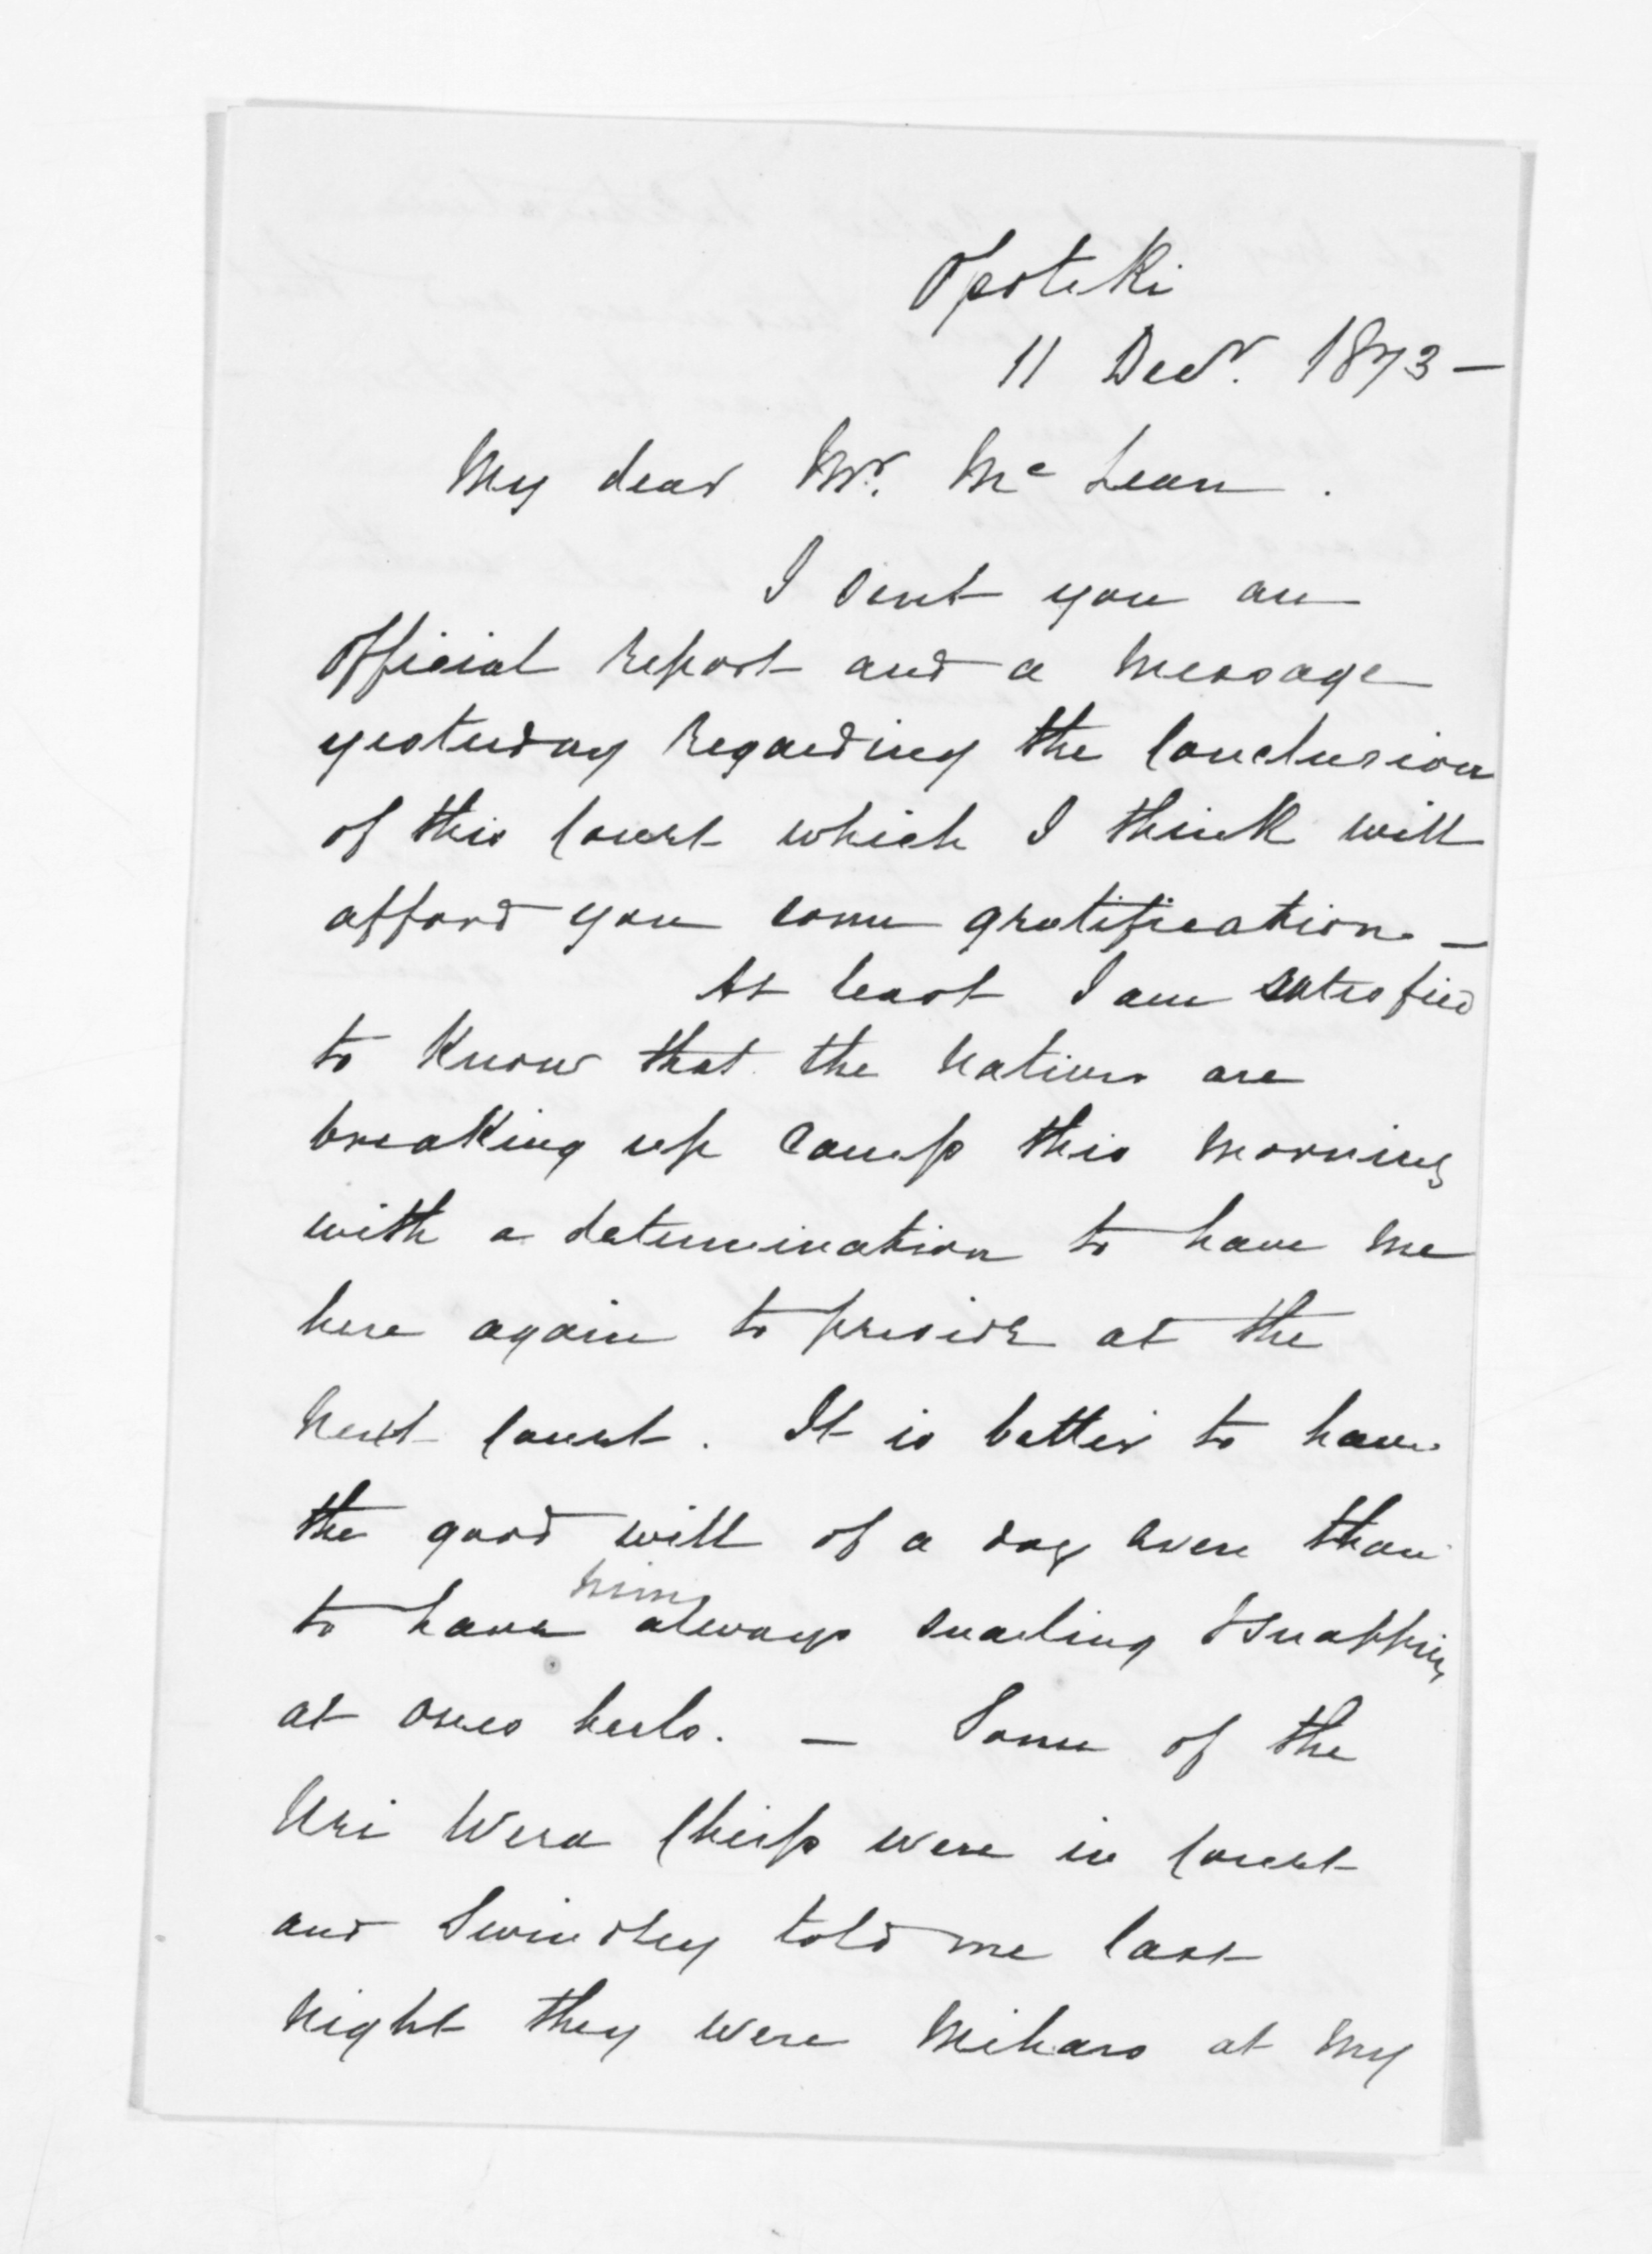 Opotiki
11 Decr. 1873 —
My dear Mr. McLean.
I sent you an
Official Report and a Message
yesterday Regarding the Conclusion
of this Court which I think will
afford you some gratification —
At least I am satisfied
to Know that the Natives are
breaking up Camp this Morning
with a determination to have me
here again to preside at the
Next Court. It is better to have
the good will of a dog even than
to have him always snarling & snapping
at ones heels. — Some of the
Uri Wera Chiefs were in Court
and Swindley told me last
Night they were Miharo at my